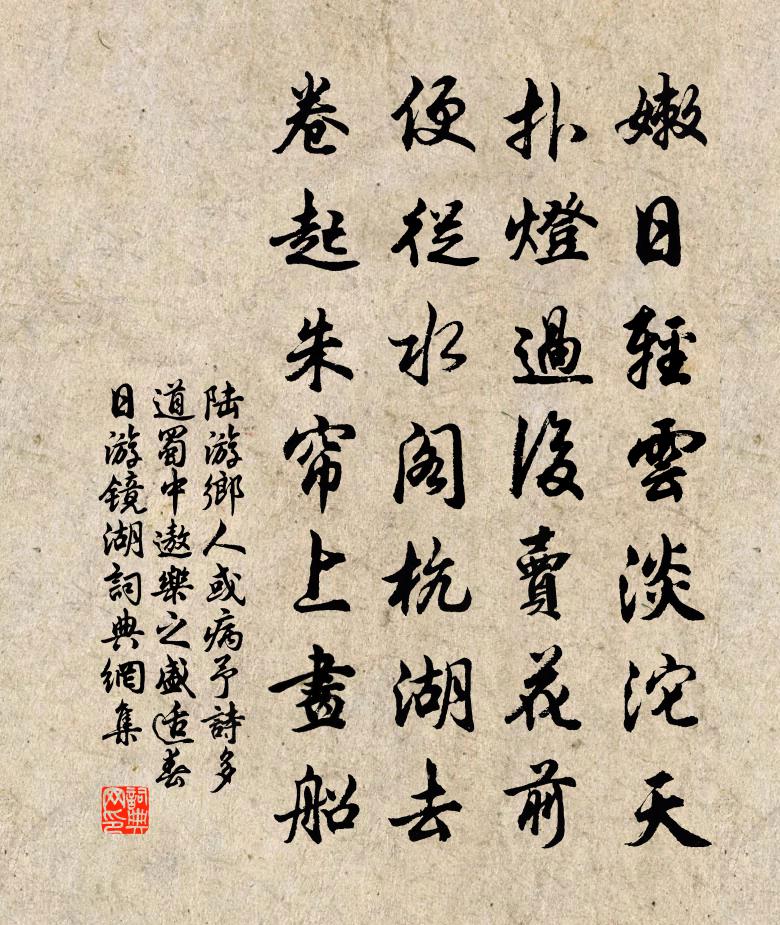 嫩日輕雲淡沱天
扑燈過後賣花前
便從水閣杭湖去
卷起朱帘上畫船
陆游鄉人或病予詩多
道蜀中遨樂之盛适春
日游镜湖詞典網集
詞典网印